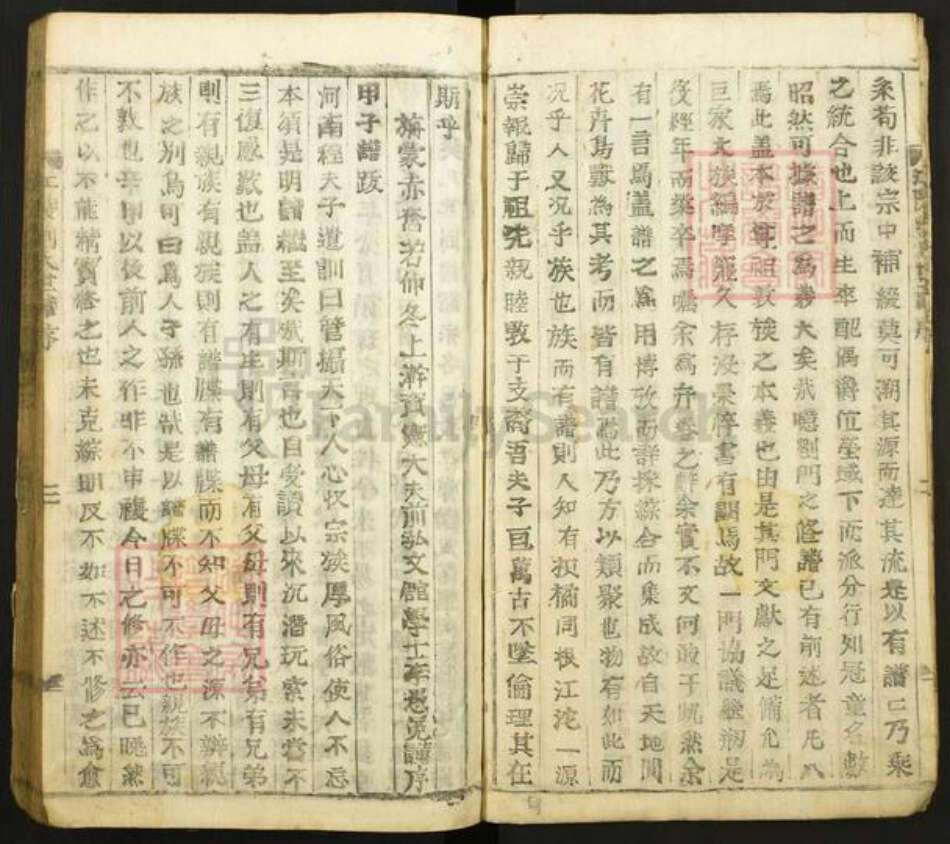 來苟非該宗中補綴莫可溯其源而達其流是以有譜匕乃乘
之統合也上而生卒配偶爵位塋域下而派分行如冠童名數
昭然可據譜之爲義大矣哉噫劉門之修譜已有前述者凡八
焉此盖本於尊祖敦族之本義也由是其門文獻之足備允爲
巨家大族編摩雖久存沒果停書有調焉故一門協議繼刱是
役經年而榮卒焉囑余爲弁卷之辭余實不文何敢于旣然余
有一言焉盖譜之爲用博攷而詳採綜合而集成故自天地間
花卉鳥獸爲其考而皆有譜焉此乃方以類聚也物有如此而
况乎人又况乎族也族而有譜則人知有枳橘同根江沱一源
崇報歸于祖先親睦敦于支裔吾夫子亘萬古不墜倫理其在
斯乎
旃蒙赤奮若仲冬上澣資憲大夫前弘文館學士李 謹序
甲子譜跋
河南程夫子遺訓曰管攝天下人心收宗族厚風俗使人不忘
本須是明譜系至矣哉斯言也自受讀以來沉潛玩索未嘗不
三復感歎也盖人之有生則有父母有父母則有兄弟有兄弟
則有親族有親族則有譜牒有譜牒而不知父母之源不辨親
族之別烏可曰爲人子孫也哉是以譜牒不可不作也親族不可
不敦也辛甲以後前人之作非不申複今日之修亦云已晚然
作之以不能精實修之也未克綜明反不如不述不修之爲愈